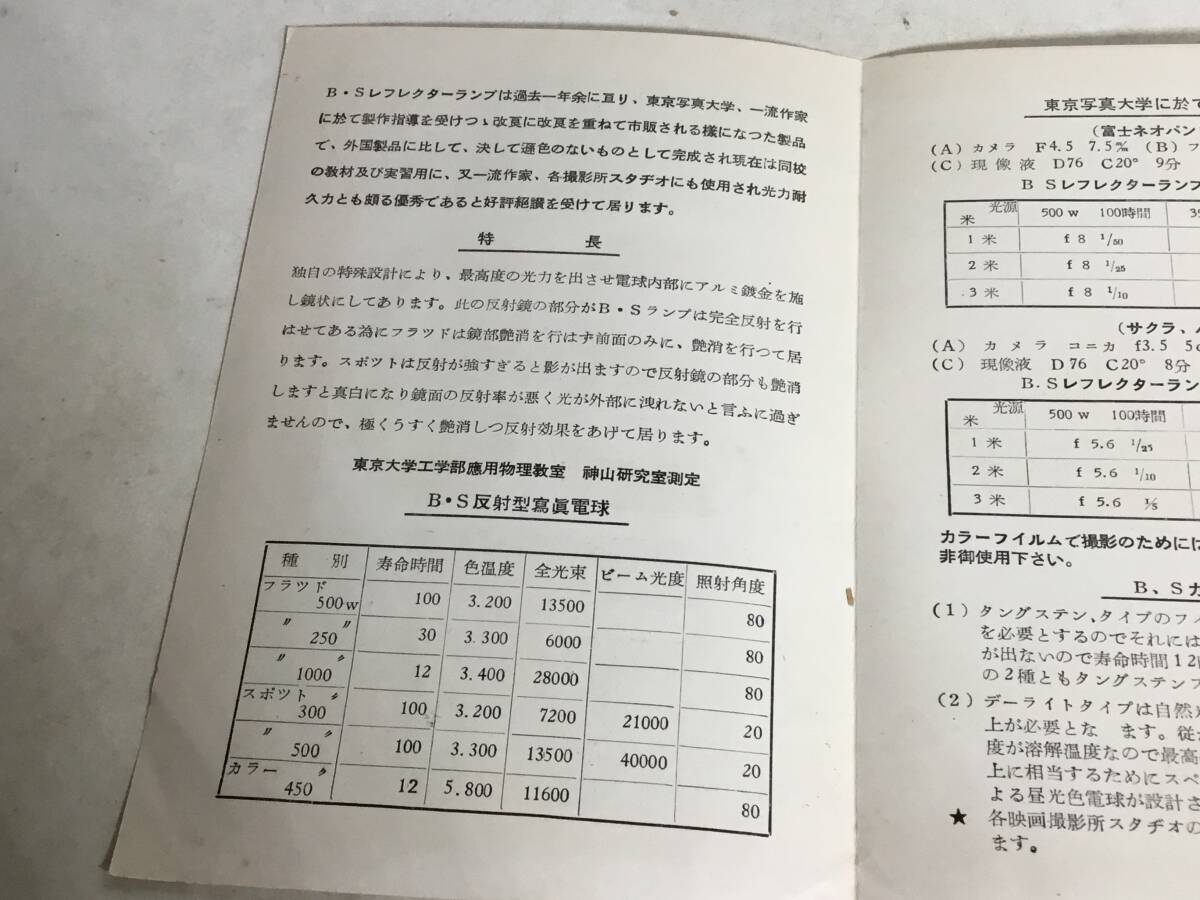 B・Sレフレクターランプは過去一年余に亘り、東京写真大学、一流作家
に於て製作指導を受けつゝ改良に改良を重ねて市販される様になつた製品
で、外国製品に比して、決して遜色のないものとして完成され現在は同校
の教材及び実習用に、又一流作家、各撮影所スタヂオにも使用され光力耐
久力とも頗る優秀であると好評絕讃を受けて居ります。
特 長
独自の特殊設計により、最高度の光力を出させ電球内部にアルミ鍍金を施
し鏡状にしてあります。此の反射鏡の部分がB・Sランプは完全反射を行
はせてある為にフラツドは鏡部艶消を行はず前面のみに、艶消を行つて居
ります。スポツトは反射が強すぎると影が出ますので反射鏡の部分も艶消
しますと真白になり鏡面の反射率が悪く光が外部に洩れないと言ふに過ぎ
ませんので、極くうすく艶消しつ反射効果をあげて居ります。
東京大学工学部應用物理教室 神山研究室測定
B・S反射型寫眞電球
種 別 寿命時間 色温度 全光束 ビーム光度 照射角度
フラツド 500w 100 3.200 13500 80
〃 250〃 30 3.300 6000 80
〃 1000〃 12 3.400 28000 80
スポツト 300〃 100 3.200 7200 21000 20
〃 500〃 100 3.300 13500 40000 20
カラー 450〃 12 5.800 11600 80
東京写真大学に於て
(富士ネオパン
(A) カメラ F4.5 7.5㎝ (B) フ
(C) 現像液 D76 C20° 9分
B Sレフレクターランプ
米 光源 500w 100時間 35
1米 f 8 1/50
2米 f 8 1/25
3米 f 8 1/10
(サクラ、
(A) カメラ コニカ f3.5 5c
(C) 現像液 D76 C20° 8分
B.Sレフレクターラン
米 光源 500w 100時間
1米 f 5.6 1/25
2米 f 5.6 1/10
3米 f 5.6 1/5
カラーフイルムで撮影のためには
非御使用下さい。
B、Sカ
(1) タングステン、タイプのフィ
を必要とするのでそれには
が出ないので寿命時間12
の2種ともタングステンフ
(2) デーライトタイプは自然
上が必要とな ます。従
度が溶解温度なので最高
上に相当するためにスペ
よる昼光色電球が設計さ
★ 各映画撮影所スタヂオの
ます。